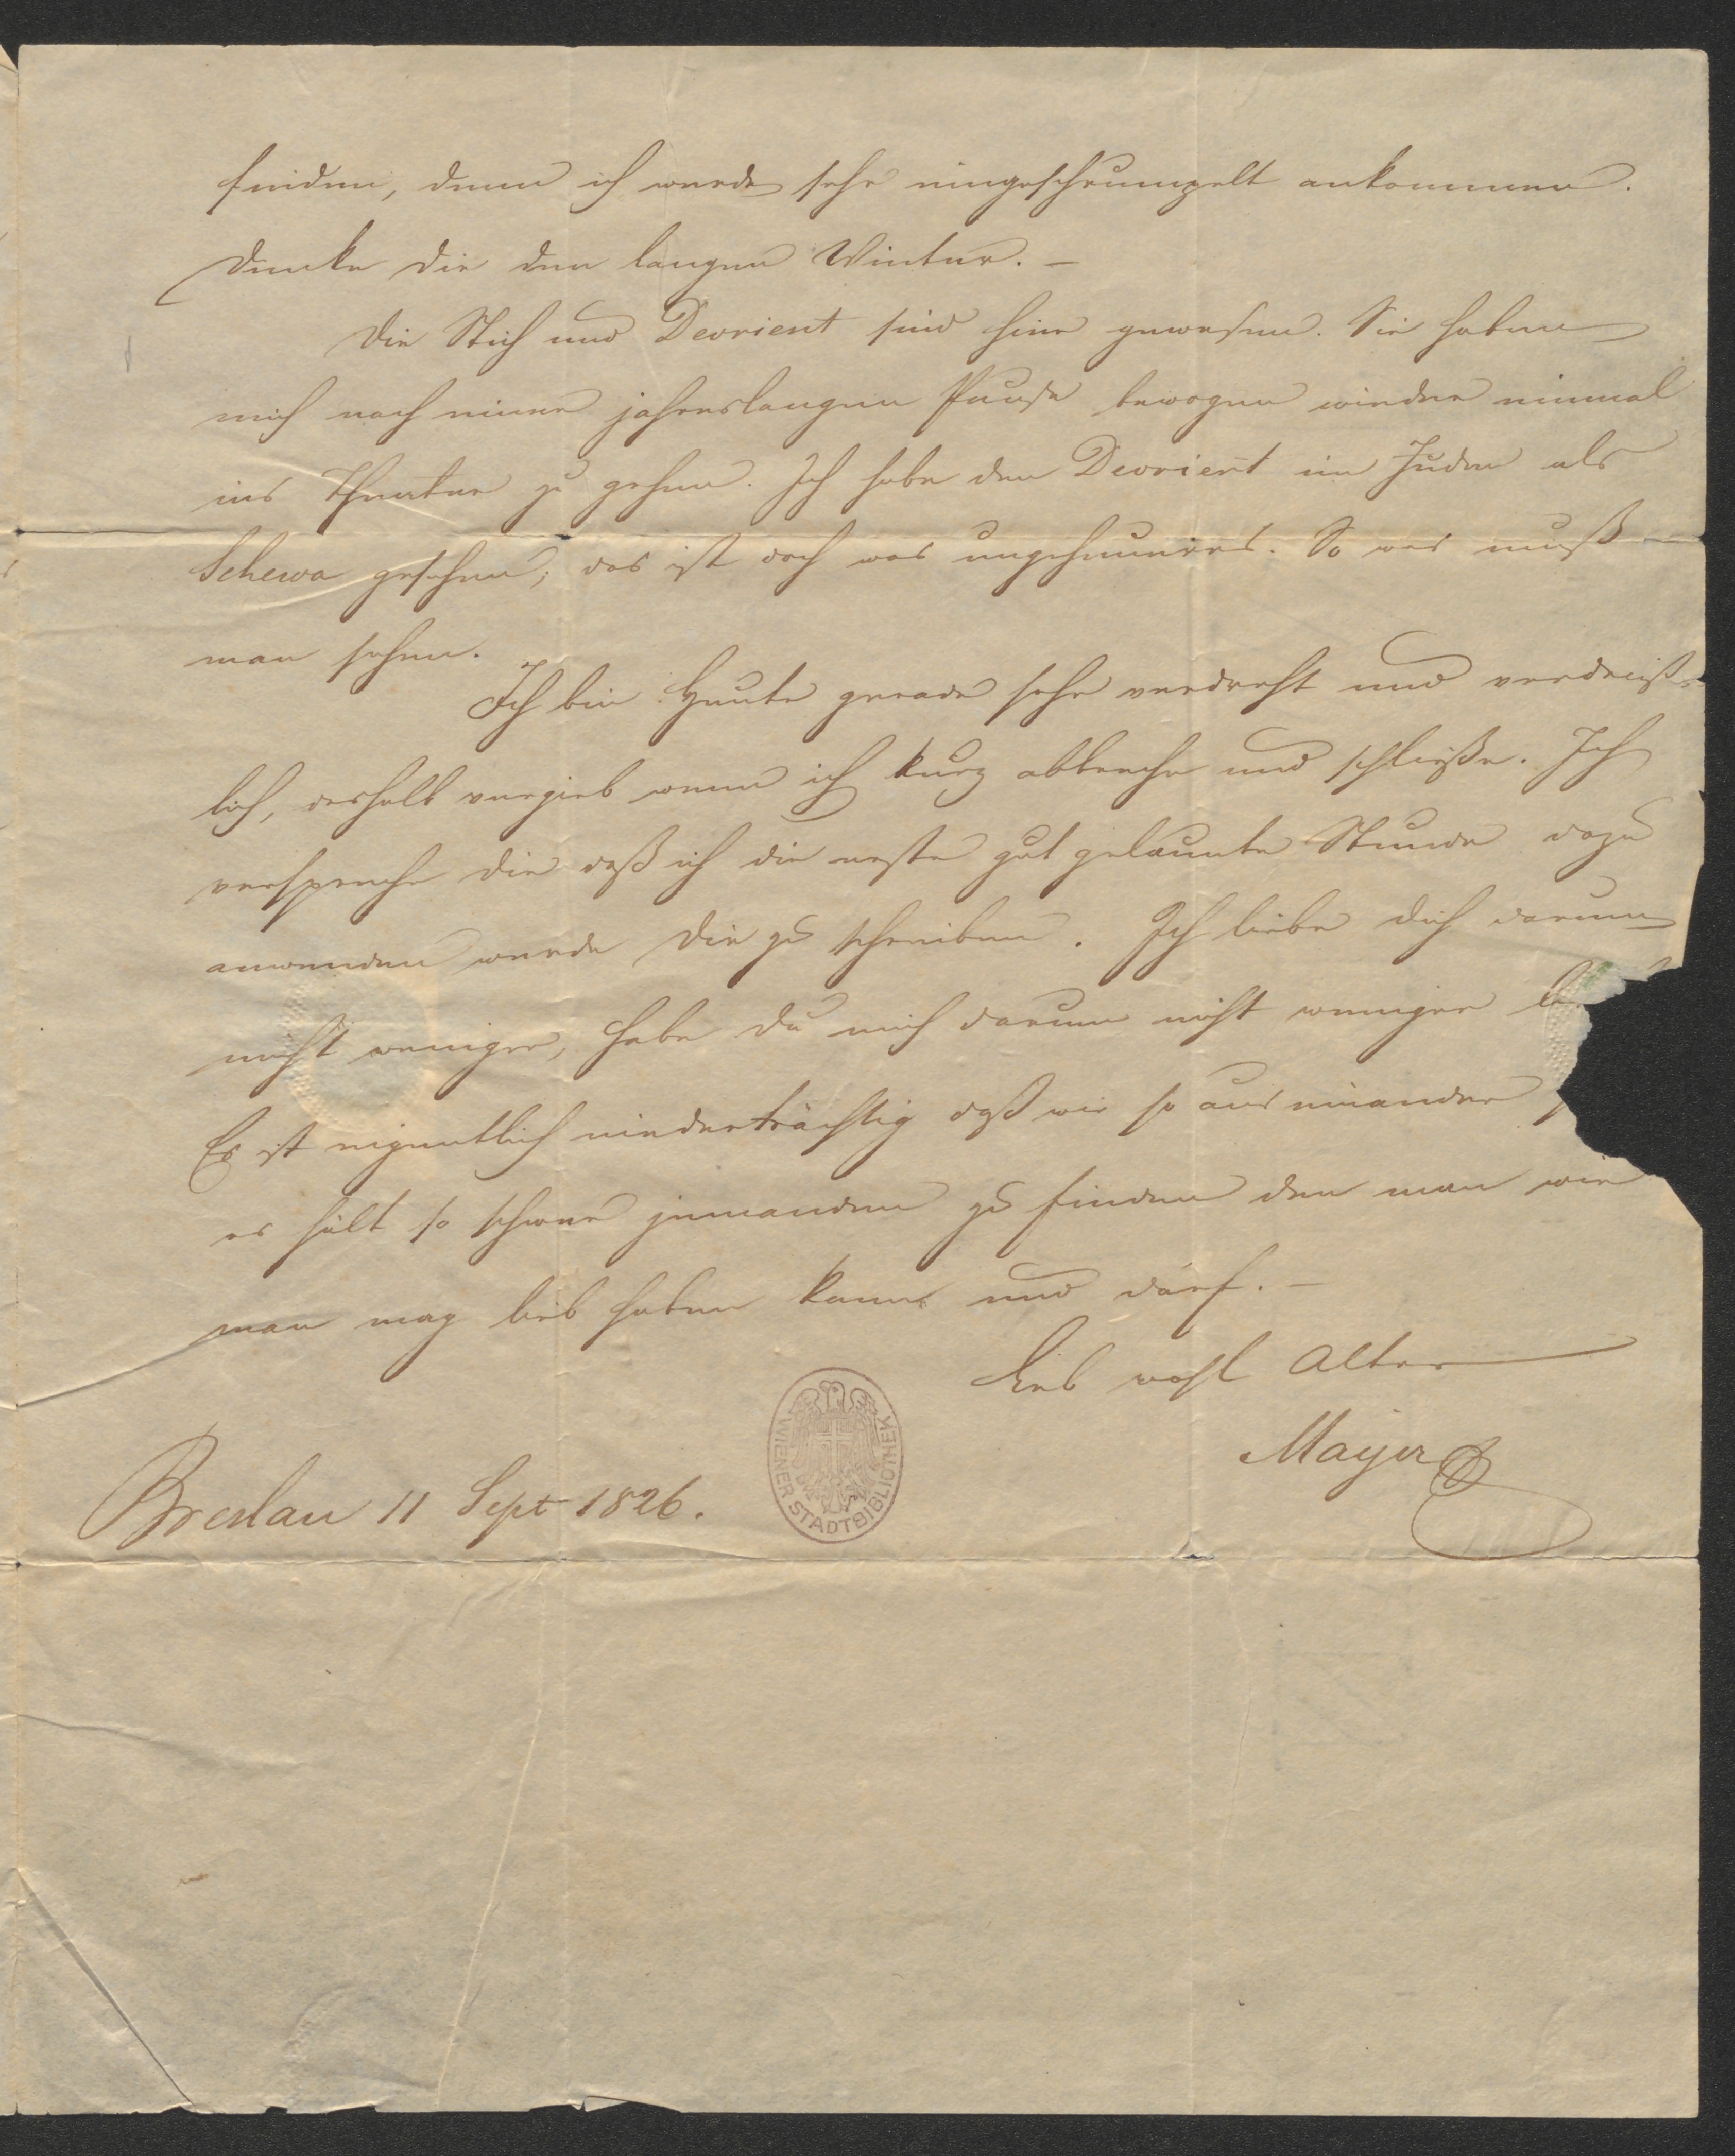 finden, denn ich werde sehr eingeschrumpelt ankommen.
Denke dir den langen Winter. –
Die Stich und Devrient sind hier gewesen. Sie haben
mich nach einer jahrelangen Pause bewogen wieder einmal
ins Theater zu gehen. Ich habe den Devrient im Juden als
Schewa gesehen; das ist doch was ungeheueres. So was muß
man sehen.
Ich bin heute gerade sehr verdreht und verdrieß-
lich, deshalb vergieb wenn ich kurz abbreche und schließe. Ich
verspreche dir daß ich die erste gut gelaunte Stunde dazu
anwenden werde dir zu schreiben. Ich liebe dich darum
nicht weniger, habe du mich darum nicht weniger
Es ist eigentlich niederträchtig daß wir so aus einander
es hält so schwer jemanden zu finden den man wie
man mag lieb haben kann und darf. –
Leb wohl Alter
Mayer
Breslau 11 Sept 1826.
WIENER STADTBIBLIOTHEK